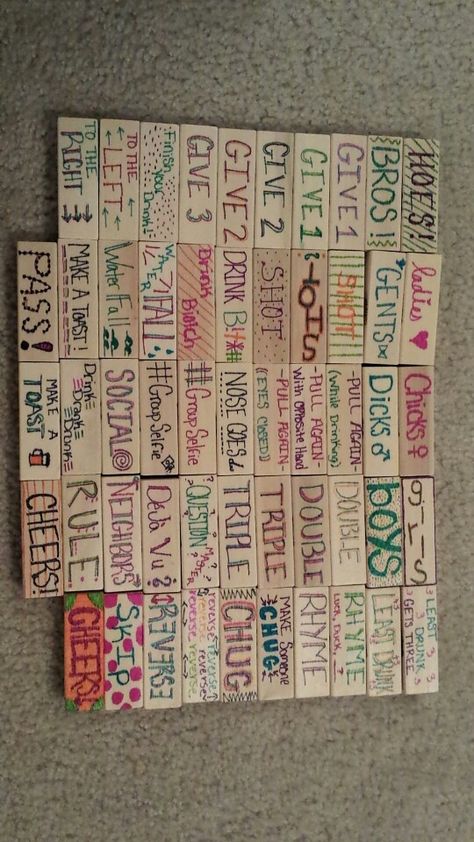 TO THE
RIGHT
TO THE
LEFT
Finish
your
Drink!
GIVE 3
GIVE 2
GIVE 2
GIVE 1
GIVE 1
BROS!
HOES!!
PASS!
MAKE A TOAST!
Waterfall
WATER
FALL
Drink
Biotch
DRINK B!*#
SHOT
SHOT
SHOT!
GENTS
ladies
MAKE A
TOAST
Drink
Drank
Drunk
SOCIAL
#GroupSelfie
#GroupSelfie
NOSE GOES
-PULL AGAIN-
(EYES CLOSED)
-PULL AGAIN-
with opposite Hand
-PULL AGAIN-
(while Drinking)
Dicks
Chicks
CHEERS!
RULE
NEIGHBORS
Déjà Vu?
QUESTION
MASTER
TRIPLE
TRIPLE
DOUBLE
DOUBLE
boys
girls
CHEERS!
SKIP
REVERSE
reverse reverse
reverse reverse
CHUG
MAKE Someone
CHUG
RHYME
RHYME
LEAST DRUNK
LEAST DRUNK
GETS THREE